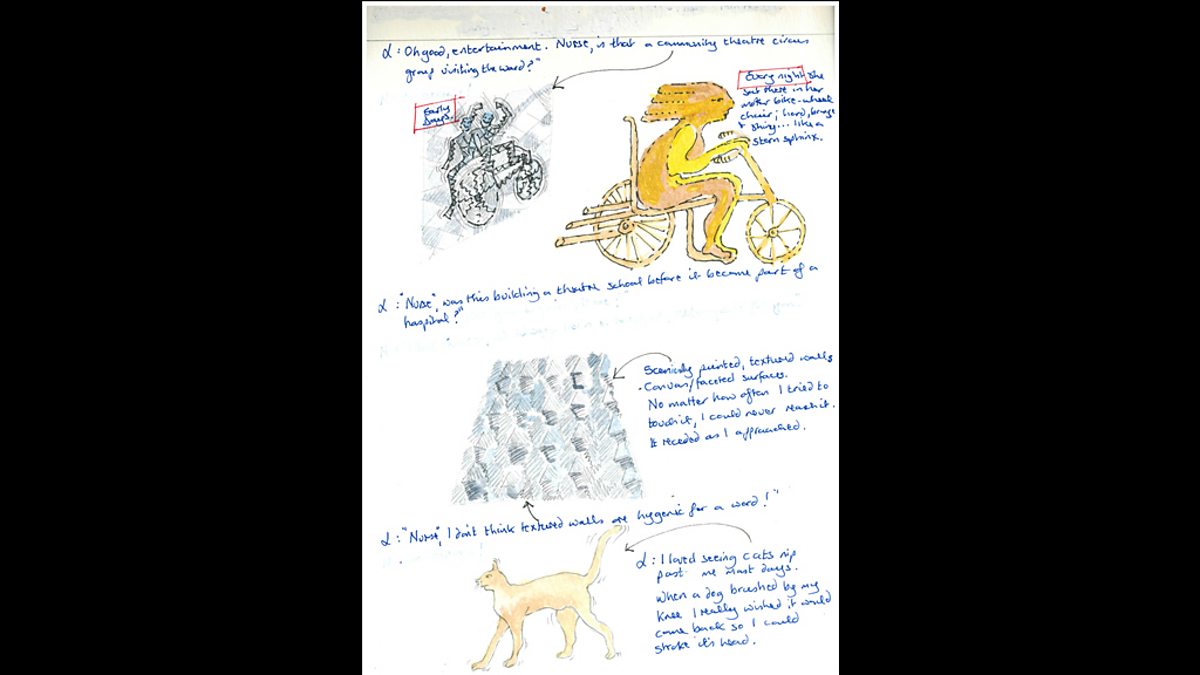 α: Oh good, entertainment. Nurse, is that a community theatre circus
group visiting the ward?"
Early
Days.
Every night she
sat there in her
motor bike-wheel
chair; hard, bronze
+ shiny... like a
stern sphinx.
α: "Nurse", was this building a theatre school before it became part of a
hospital?"
Scenically painted, textured walls
. Canvas/faceted surfaces.
No matter how often I tried to
touch it, I could never reach it.
It receded as I approached.
α: "Nurse", I don't think textured walls are hygenic for a ward!"
α: I loved seeing cats nip
past me most days.
When a dog brushed by my
knee I really wished it would
come back so I could
stroke it's head.